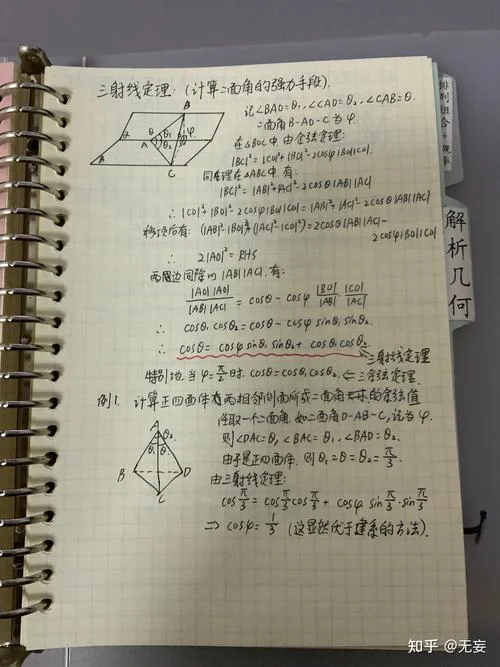 三射线定理:(计算二面角的强力手段).
记∠BAO=θ₁,∠CAO=θ₂,∠CAB=θ.
二面角B-AO-C为φ.
在△BOC中由余弦定理:
|BC|²=|CO|²+|BO|²-2cosφ|BO||CO|.
同在理在△ABC中,有:
|BC|²=|AB|²+|AC|²-2cosθ|AB||AC|
∴ |CO|²+|BO|²-2cosφ|BO||CO|=|AB|²+|AC|²-2cosθ|AB||AC|
移项后有: (|AB|²-|BO|²)+(|AC|²-|CO|²)=2cosθ|AB||AC|-
2cosφ|BO||CO|
∴ 2|AO|²=RHS
两边同除以|AB||AC|,有:
|AO||AO|/|AB||AC| = cosθ-cosφ |BO|/|AB|·|CO|/|AC|
∴ cosθ₁cosθ₂=cosθ-cosφsinθ₁sinθ₂.
∴ cosθ=cosφsinθ₁sinθ₂+cosθ₁cosθ₂.
三射线定理
特别地,当φ=π/2时.cosθ=cosθ₁cosθ₂.←三余弦定理.
例1. 计算正四面体有两相邻侧面所成二面角的余弦值
任取一个二面角.如二面角D-AB-C,记为φ.
则∠DAC=θ,∠BAC=θ₁,∠BAD=θ₂.
由于是正四面体.则θ₁=θ=θ₂=π/3.
由三射线定理:
cosπ/3=cosπ/3cosπ/3+cosφsinπ/3·sinπ/3
⇒cosφ=1/3(这显然优于建系的方法).
B
A
θ₁
θ₂
φ
C
A
θ₂
θ
θ₁
B
D
C
排列组合+概率
解析几何
知乎 @无妄